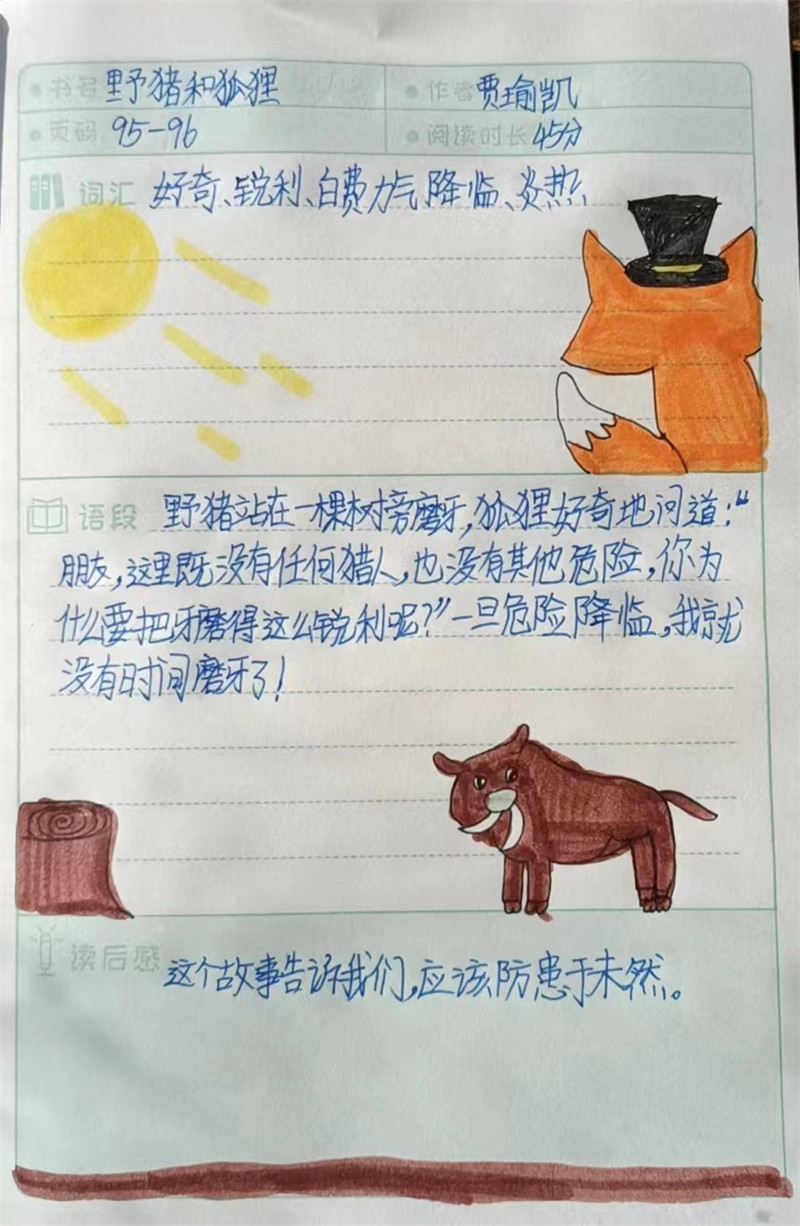 书名 野猪和狐狸 作者 贾瑜凯
页码 95-96 阅读时长 45分
词汇 好奇、锐利、白费力气、降临、炎热
语段 野猪站在一棵树旁磨牙,狐狸好奇地问道:“
朋友,这里既没有任何猎人,也没有其他危险,你为
什么要把牙磨得这么锐利呢?”一旦危险降临,我就
没有时间磨牙了!
读后感 这个故事告诉我们,应该防患于未然。